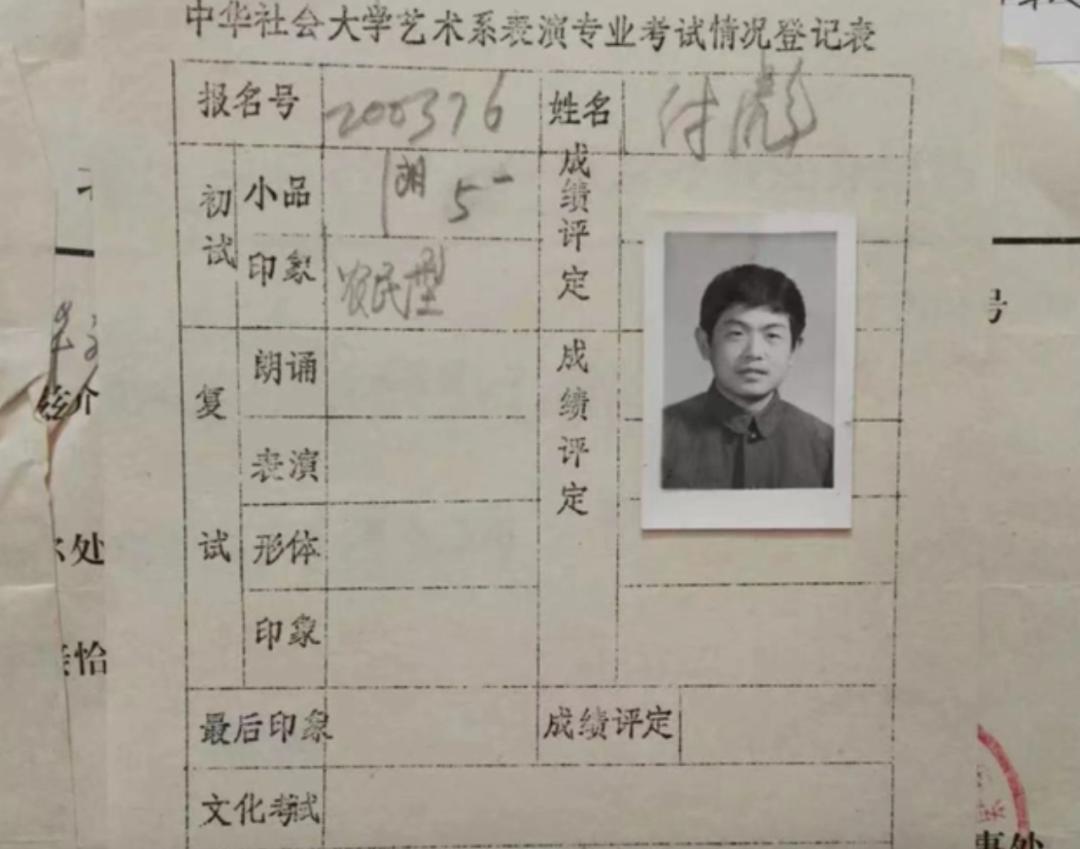 中华社会大学艺术系表演专业考试情况登记表
报名号 200376 姓名 付彪
初试 小品 朗 5- 成绩评定
印象 农民型
复试 朗诵 成绩评定
表演
形体
印象
最后印象 成绩评定
文化考试
号
介
处
恰
事处